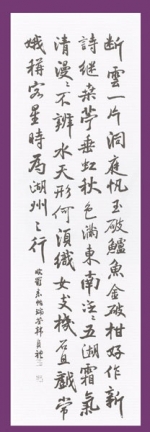 断雲一片洞庭帆玉破鱸魚金破柑好作新
詩継桑苧垂虹秋色満東南泛々五湖霜氣
清漫々不辨水天形何須織女支機石且戲常
娥稱客星時為湖州之行